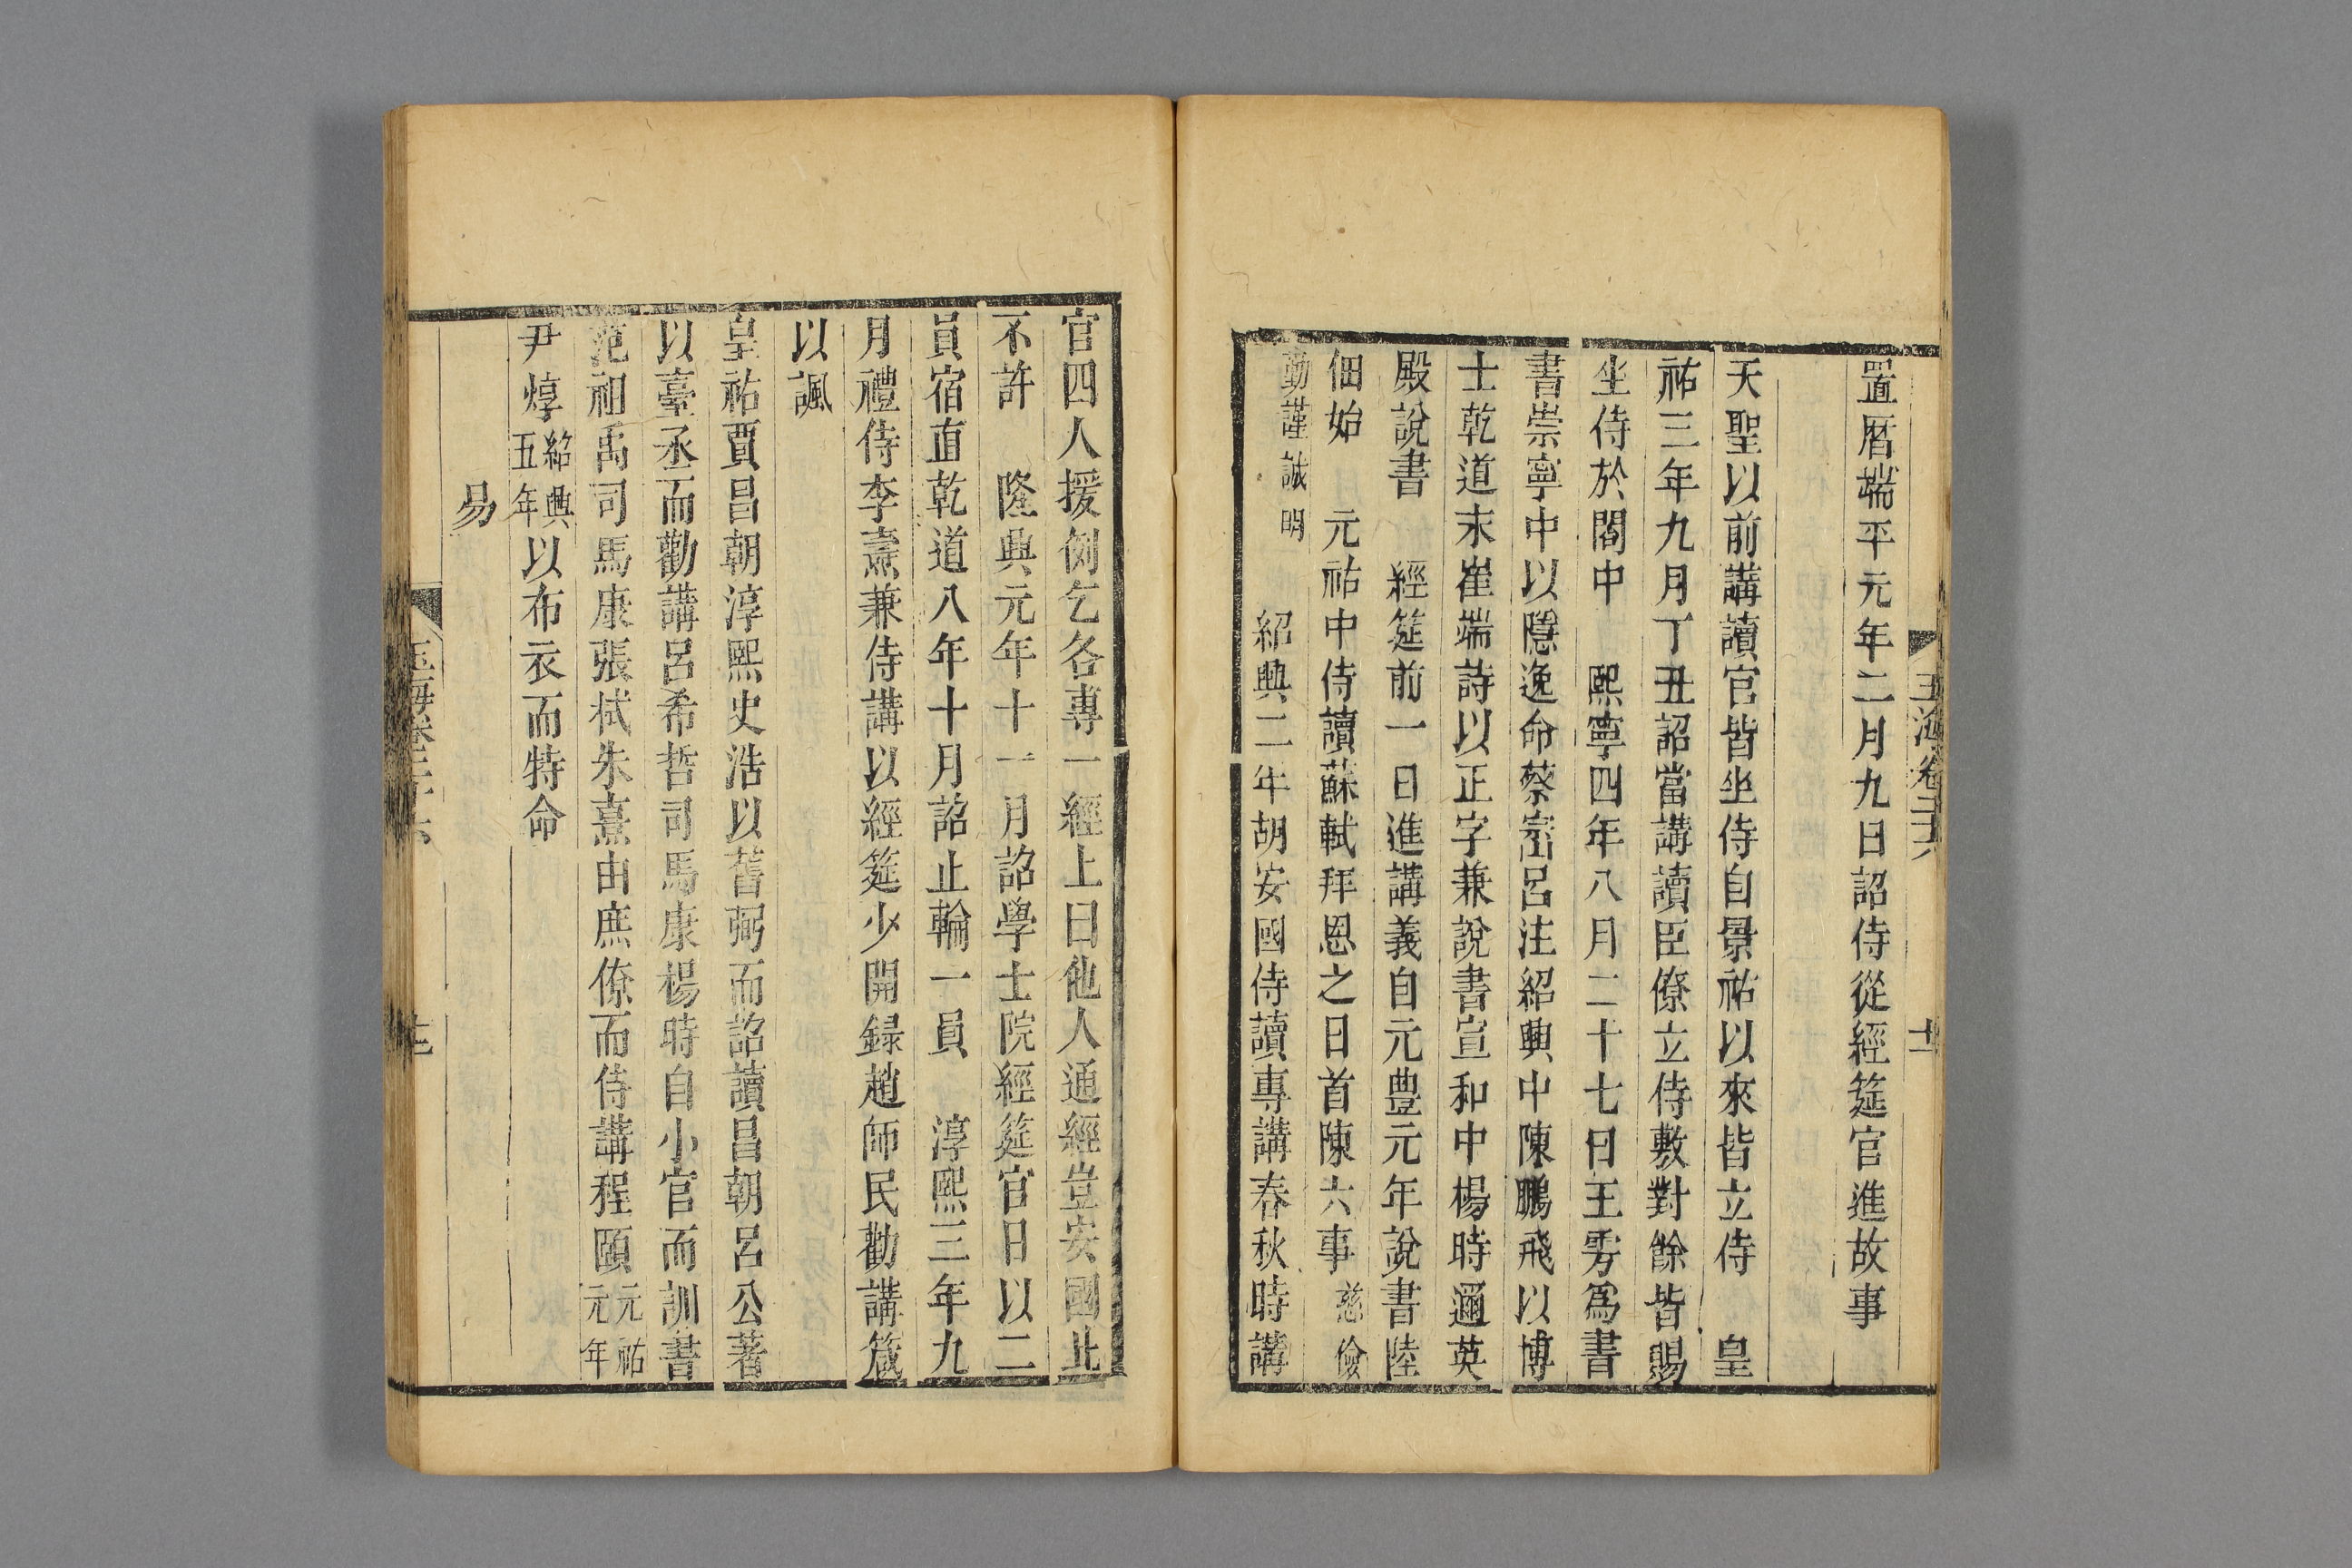 玉海卷二十六
十二
置曆端平元年二月九日詔侍從經筵官進故事
天聖以前講讀官皆坐侍自景祐以來皆立侍　皇
祐三年九月丁丑詔當講讀臣僚立侍敷對餘皆賜
坐侍於閣中　熙寧四年八月二十七日王雱爲書
書崇寧中以隱逸命蔡崈呂注紹興中陳鵬飛以博
士乾道末崔端詩以正字兼說書宣和中楊時邇英
殿說書　經筵前一日進講義自元豊元年說書陸
佃始　元祐中侍讀蘇軾拜恩之日首陳六事慈儉
勤謹誠明
紹興二年胡安國侍讀專講春秋時講
官四人援例乞各專一經上曰他人通經豈安國比
不許　隆興元年十一月詔學士院經筵官日以二
員宿直乾道八年十月詔止輪一員　淳熙三年九
月禮侍李燾兼侍講以經筵少開録趙師民勸講箴
以諷
皇祐賈昌朝淳熙史浩以舊弼而詔讀昌朝呂公著
以臺丞而勸講呂希哲司馬康楊時自小官而訓書
范祖禹司馬康張栻朱熹由庶僚而侍講程頤元祐元年
尹焞紹興五年以布衣而特命
易
玉海卷二十六